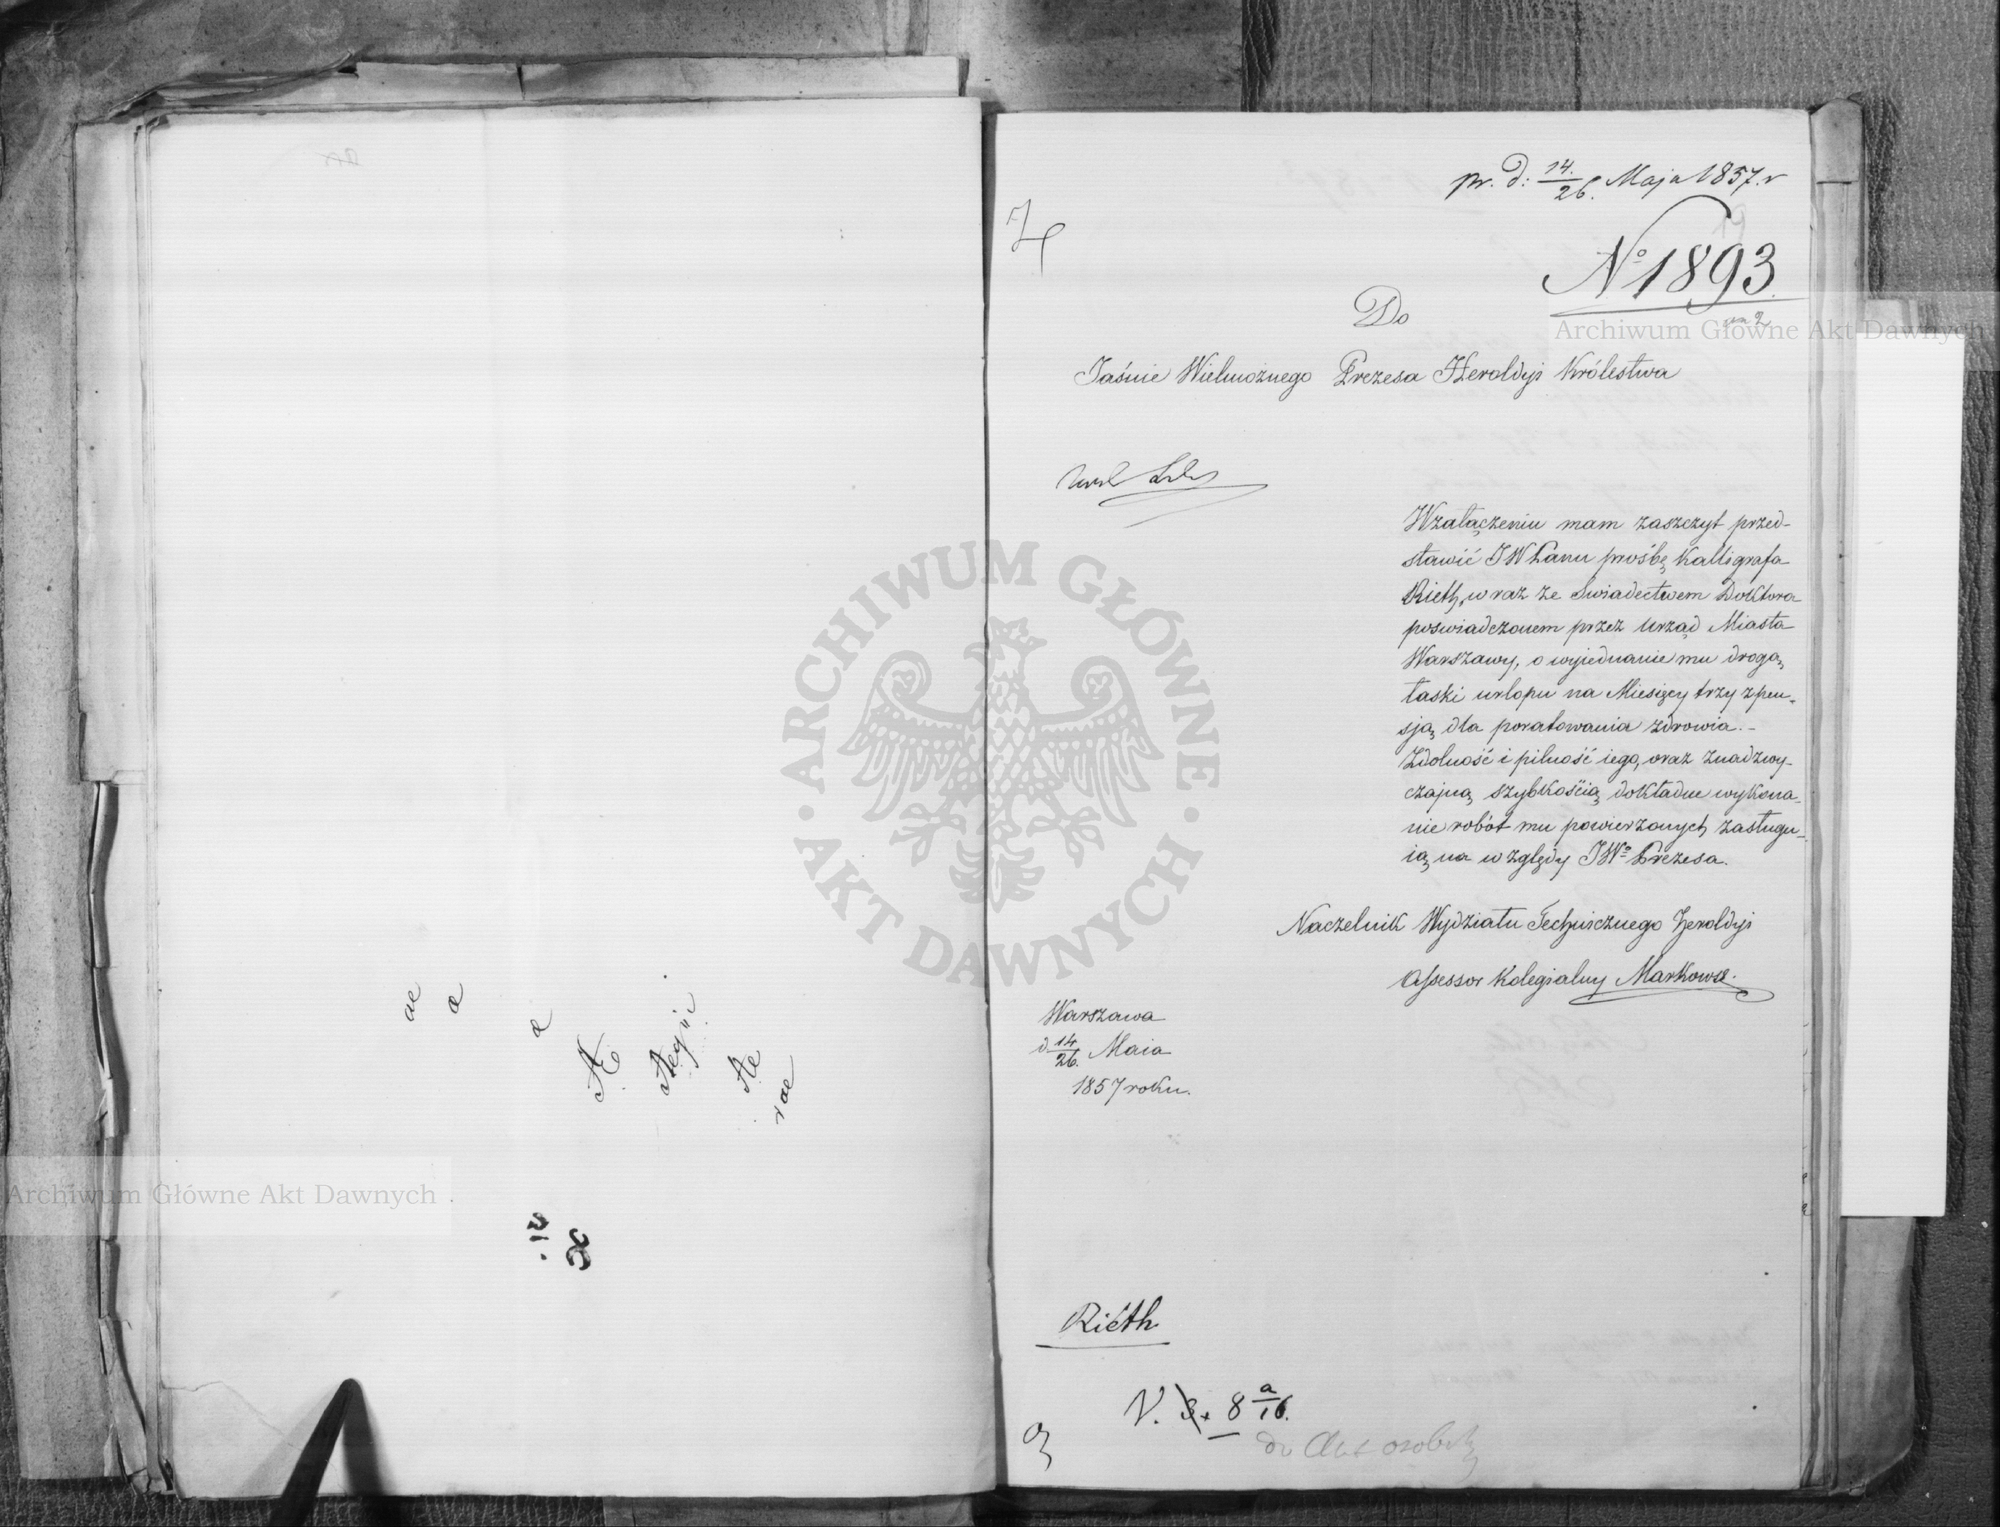 ae
a
a
Æ
Aegii
Ae
rae
pr. d: 14/26. Maja 1857. r
No 1893.
Do
Jaśnie Wielmożnego Prezesa Heroldyi Królestwa
Wzałączeniu mam zaszczyt przed-
stawić JWPanu prośbę Kalligrafa
Rieth, wraz ze Swiadectwem Doktora
poswiadczonem przez Urząd Miasta
Warszawy, o wyiednanie mu drogą
łaski urlopu na Miesięcy trzy z pen-
sją, dla poratowania zdrowia.-
Zdolność i pilność iego, oraz znadzwy-
czajną szybkością dokładne wykona-
nie robót mu powierzonych zasługu-
ią na względy JWo Prezesa.
Naczelnik Wydziału Technicznego Heroldyi
Assessor Kolegialny Markowe.
Warszawa
d 14/26. Maia
1857 roku.
Riéth
V. 3. 8 a/16.
do Akt osob
Archiwum Główne Akt Dawnych
Archiwum Główne Akt Dawnych
ARCHIWUM GŁÓWNE · AKT DAWNYCH ·